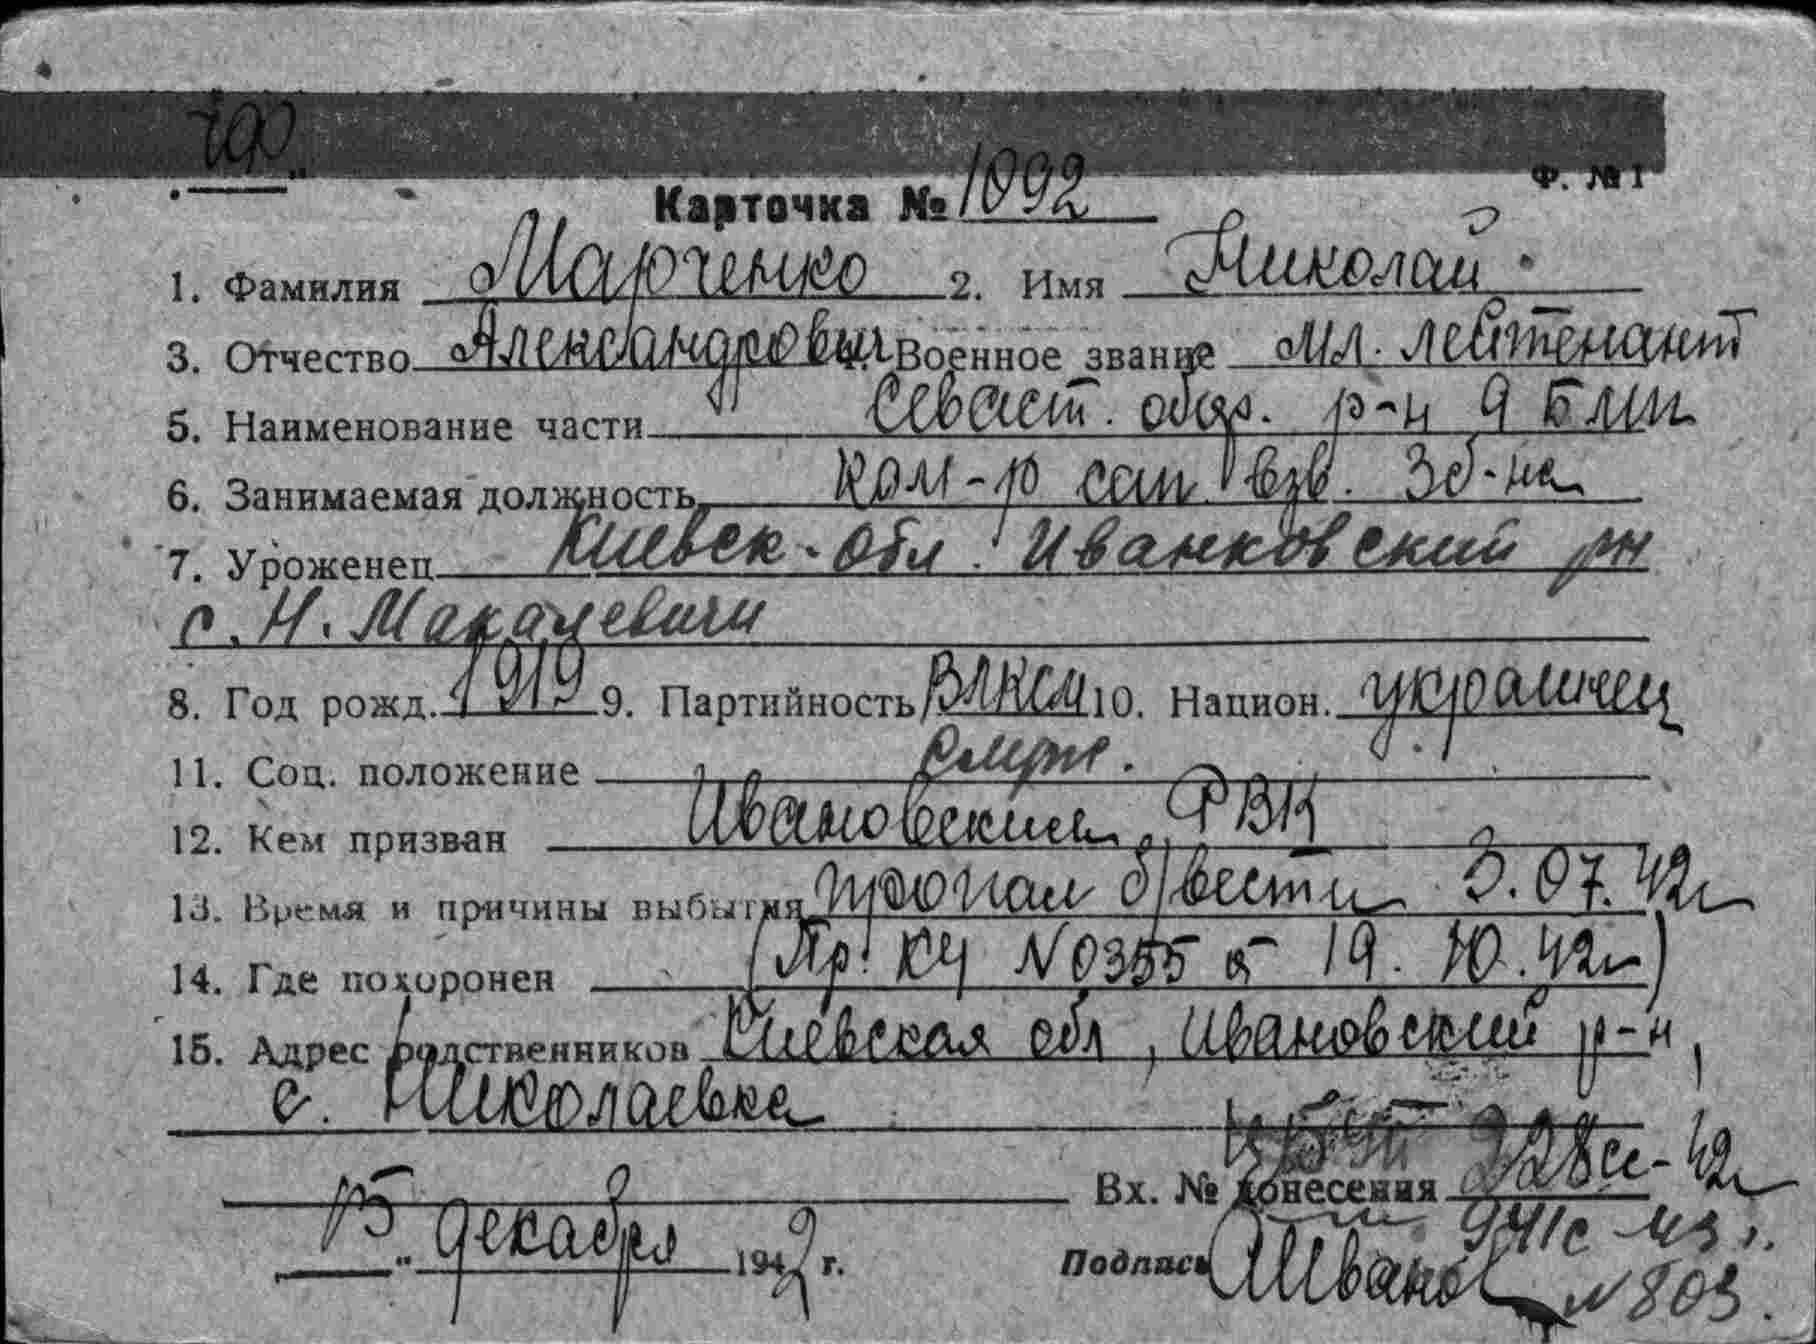 Ф. № 1
Карточка № 1092
1. Фамилия Марченко 2. Имя Николай
3. Отчество Александрович 4. Военное звание мл. лейтенант
5. Наименование части Севаст. обор. р-н 9 БМП
6. Занимаемая должность ком-р сап. взв. 3 б-на
7. Уроженец Киевск. обл. Иванковский рн
с. Н. Макалевичи
8. Год рожд. 1919 9. Партийность ВЛКСМ 10. Национ. украинец
11. Соц. положение служ.
12. Кем призван Ивановским РВК
13. Время и причины выбытия пропал б/вести 3.07.42г
14. Где похоронен (Пр. КЧ № 0355 от 19.10.42г)
15. Адрес родственников Киевская обл, Ивановский р-н,
с. Николаевка
Вх. № донесения 228сс-42г
15 декабря 1942 г.
941с 43 г.
Подпись Иванов № 803.